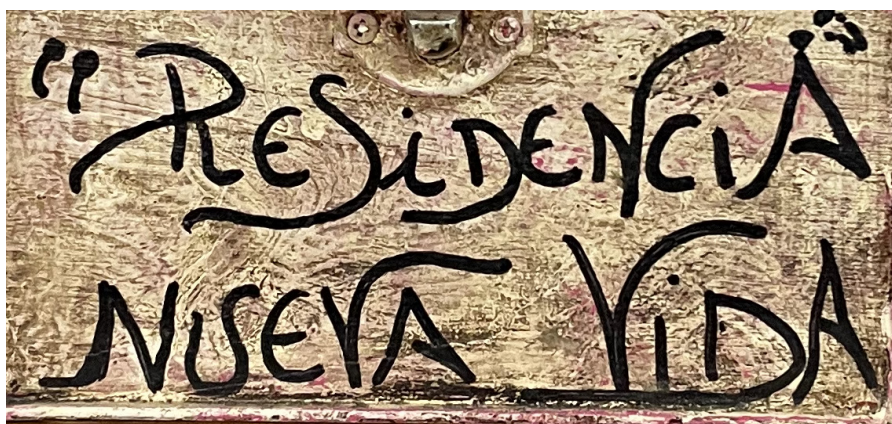 "RESiDENCiA"
NUEVA ViDA